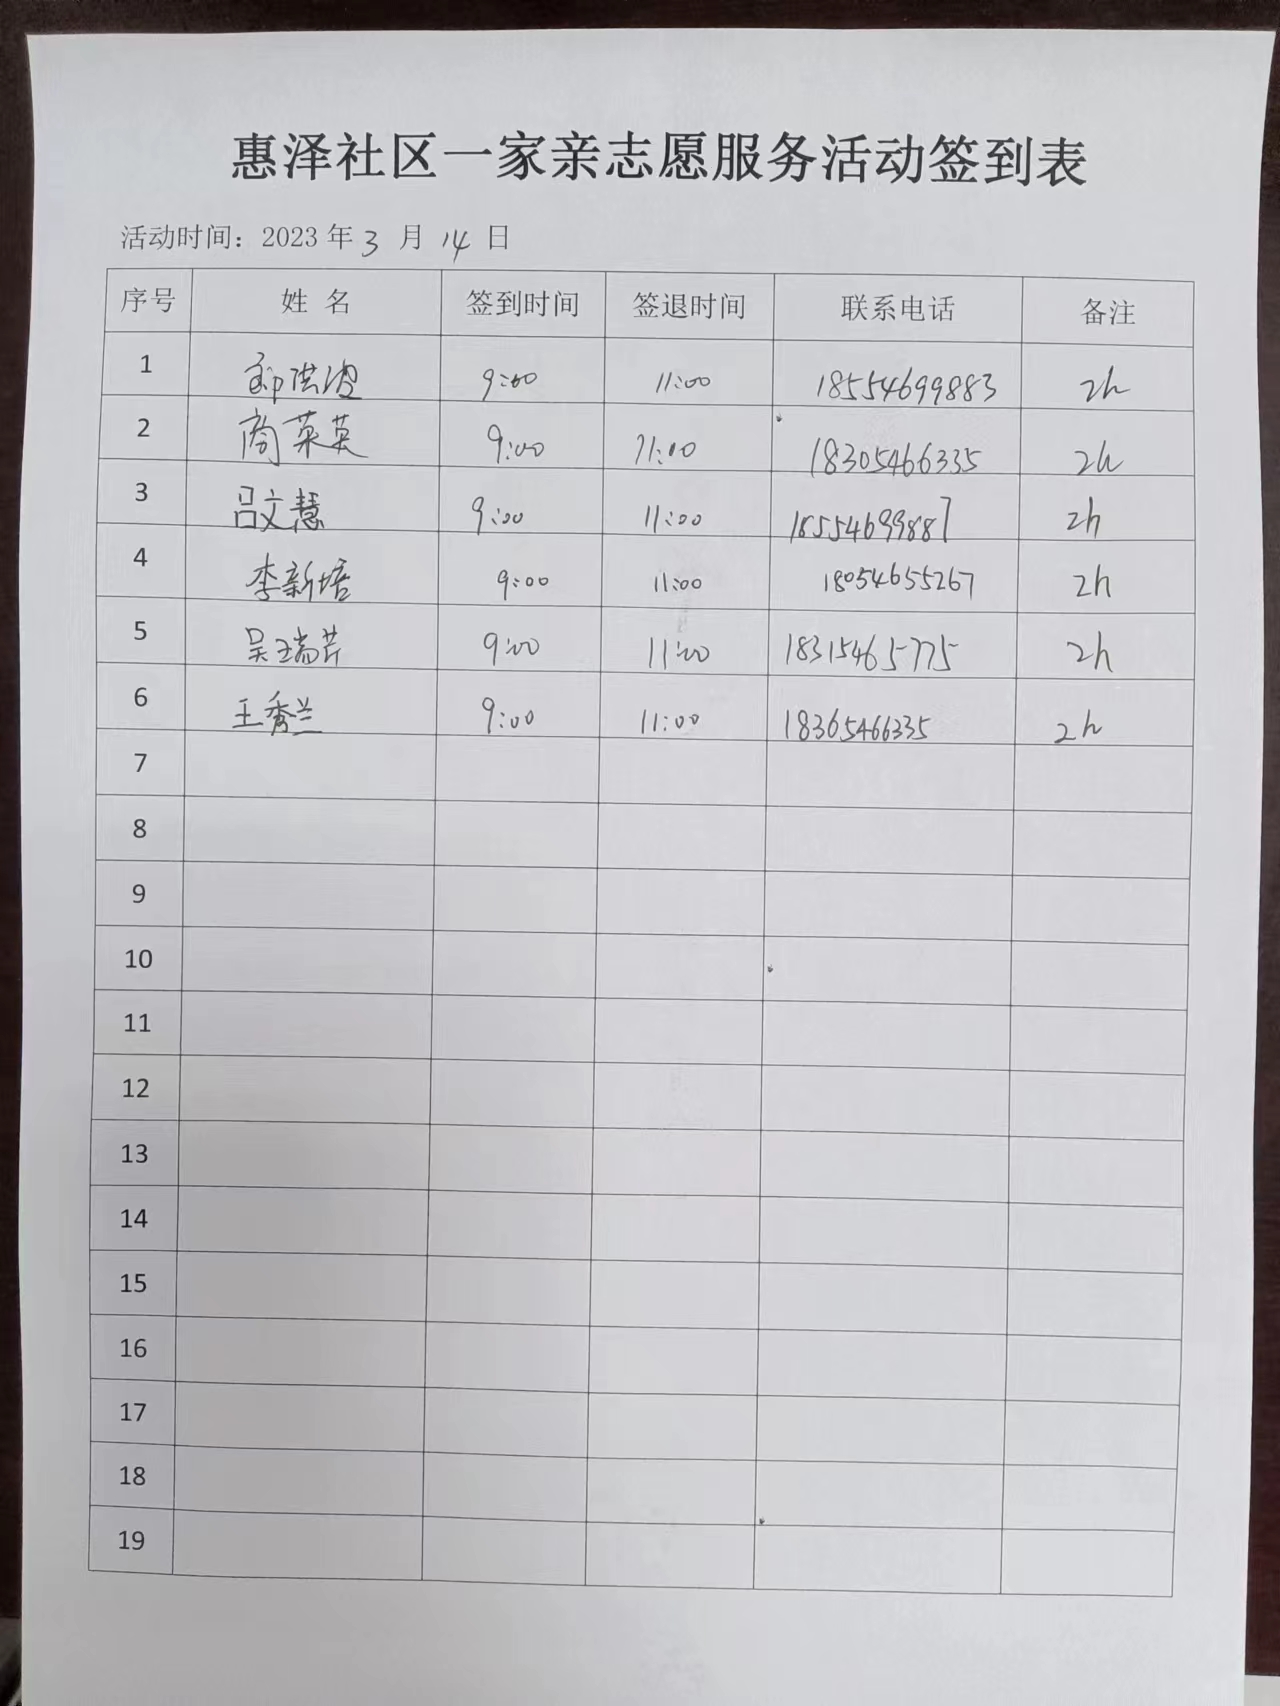 惠泽社区一家亲志愿服务活动签到表
活动时间：2023年3月14日
序号 姓名 签到时间 签退时间 联系电话 备注
1 邱洪波 9:00 11:00 18554699883 2h
2 商莱英 9:00 11:00 18305466335 2h
3 吕文慧 9:00 11:00 18554699887 2h
4 李新培 9:00 11:00 18054655267 2h
5 吴瑞芹 9:00 11:00 18315465775 2h
6 王秀兰 9:00 11:00 18365466335 2h
7
8
9
10
11
12
13
14
15
16
17
18
19